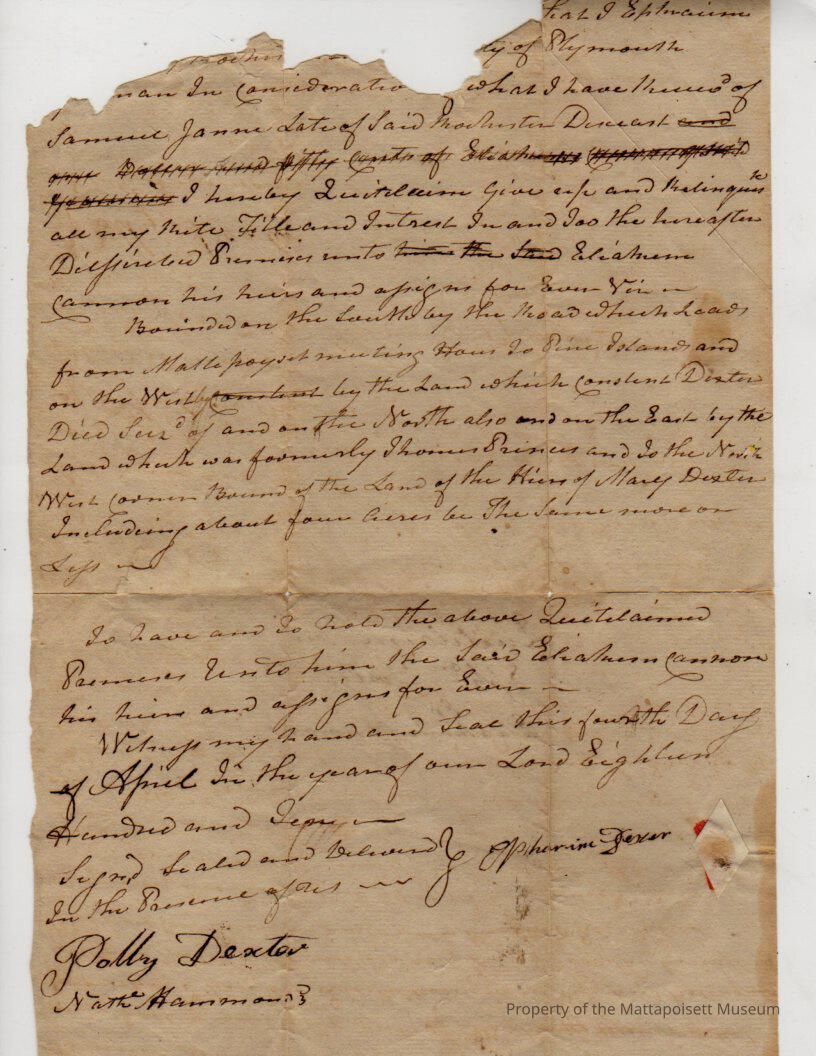 that I Ephraim
ty of Plymouth
man In Consideration what I have Received of
Samuel Janne Late of Said Rochester Deceast and
one Dollar and fifty Cents of Eliakim Cannon of Said
I hereby Quitclaim Give up and Relinquis
all my Rite Title and Intrest In and Too the hereafter
Discribed Premises unto him the Said Eliakem
Cannon his heirs and assigns for Ever Viz
Bounded on the South by the Road which Leads
from Mattepoyset meeting Hous To Pine Islands and
on the West by Constent by the Land which Constent Dexter
Died Seizd of and on the North also and on the East by the
Land which was formerly Thomas Princes and To the North
West Corner Bound of the Land of the Hiers of Mary Dexter
Including about four Acres be The Same more or
Less
To have and To hold the above Quitclaimed
Premeses Unto him the Said Eliakem Cannon
his heirs and assigns for Ever
Witness my hand and Seal this fourth Day
of April In the year of our Lord Eighteen
Hundred and
Signd Sealed and Deliverd
In the Presence of us
Ephraim Dexer
Polly Dexter
Nathl Hammond
Property of the Mattapoisett Museum